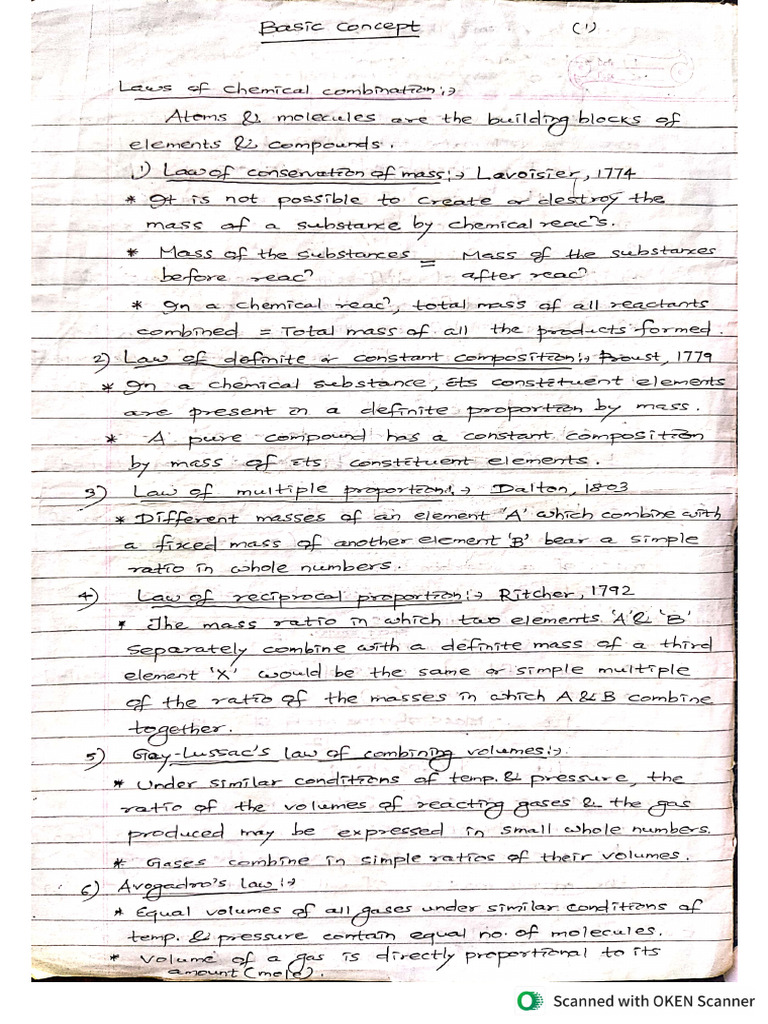 Basic Concept (1)
Laws of chemical combination:→
Atoms & molecules are the building blocks of
elements & compounds.
1) Law of conservation of mass:→ Lavoisier, 1774
* It is not possible to create or destroy the
mass of a substance by chemical reacⁿs.
* Mass of the substances = Mass of the substances
before reacⁿ after reacⁿ
* In a chemical reacⁿ, total mass of all reactants
combined = Total mass of all the products formed.
2) Law of definite or constant composition:→ Proust, 1779
* In a chemical substance, its constituent elements
are present in a definite proportion by mass.
* A pure compound has a constant composition
by mass of its constituent elements.
3) Law of multiple proportion:→ Dalton, 1803
* Different masses of an element 'A' which combine with
a fixed mass of another element 'B' bear a simple
ratio in whole numbers.
4) Law of reciprocal proportion:→ Ritcher, 1792
* The mass ratio in which two elements 'A' & 'B'
separately combine with a definite mass of a third
element 'X' would be the same or simple multiple
of the ratio of the masses in which A & B combine
together.
5) Gay-Lussac's law of combining volumes:→
* Under similar conditions of temp. & pressure, the
ratio of the volumes of reacting gases & the gas
produced may be expressed in small whole numbers.
* Gases combine in simple ratios of their volumes.
6) Avogadro's law:→
* Equal volumes of all gases under similar conditions of
temp. & pressure contain equal no. of molecules.
* Volume of a gas is directly proportional to its
amount (mole).
Scanned with OKEN Scanner